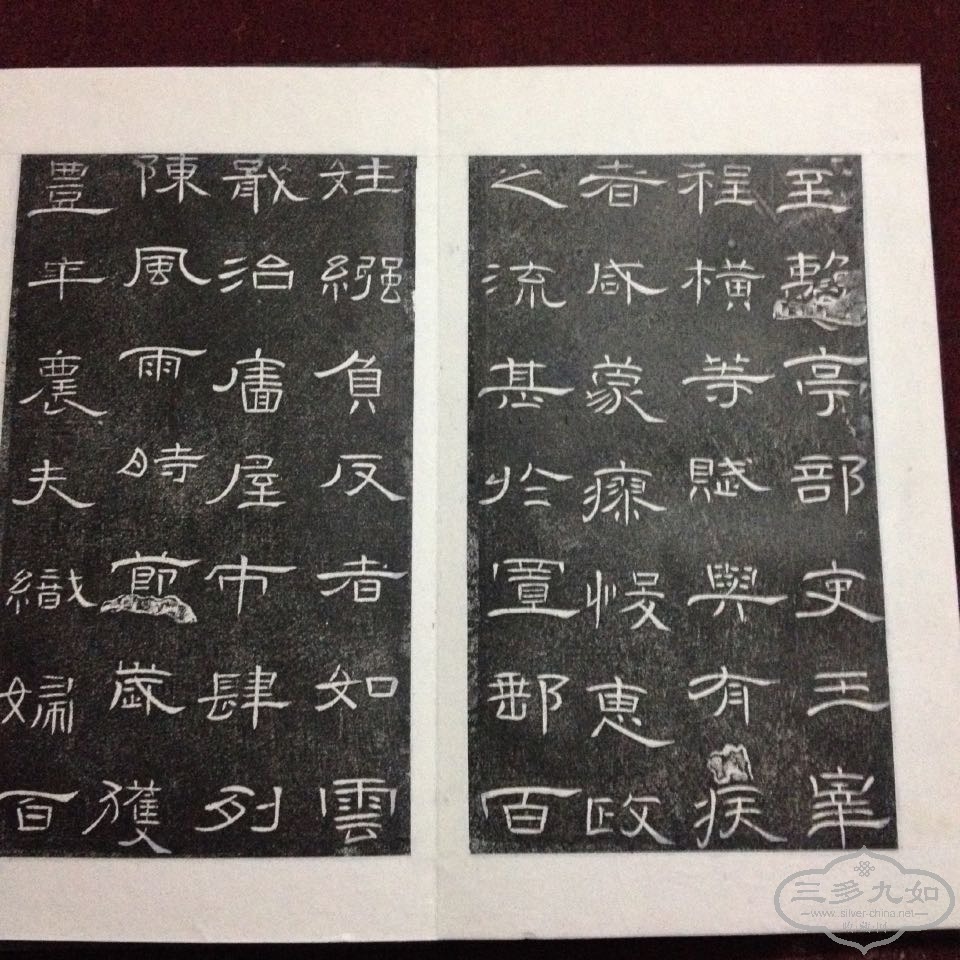 至離亭部吏王宰
程橫等賦與有疾
者咸蒙瘳悛惠政
之流甚於置郵百
姓繈負反者如雲
戢治廧屋市肆列
陳風雨時節歲獲
豐年農夫織婦百
三多九如
www.silver-china.net
收藏网